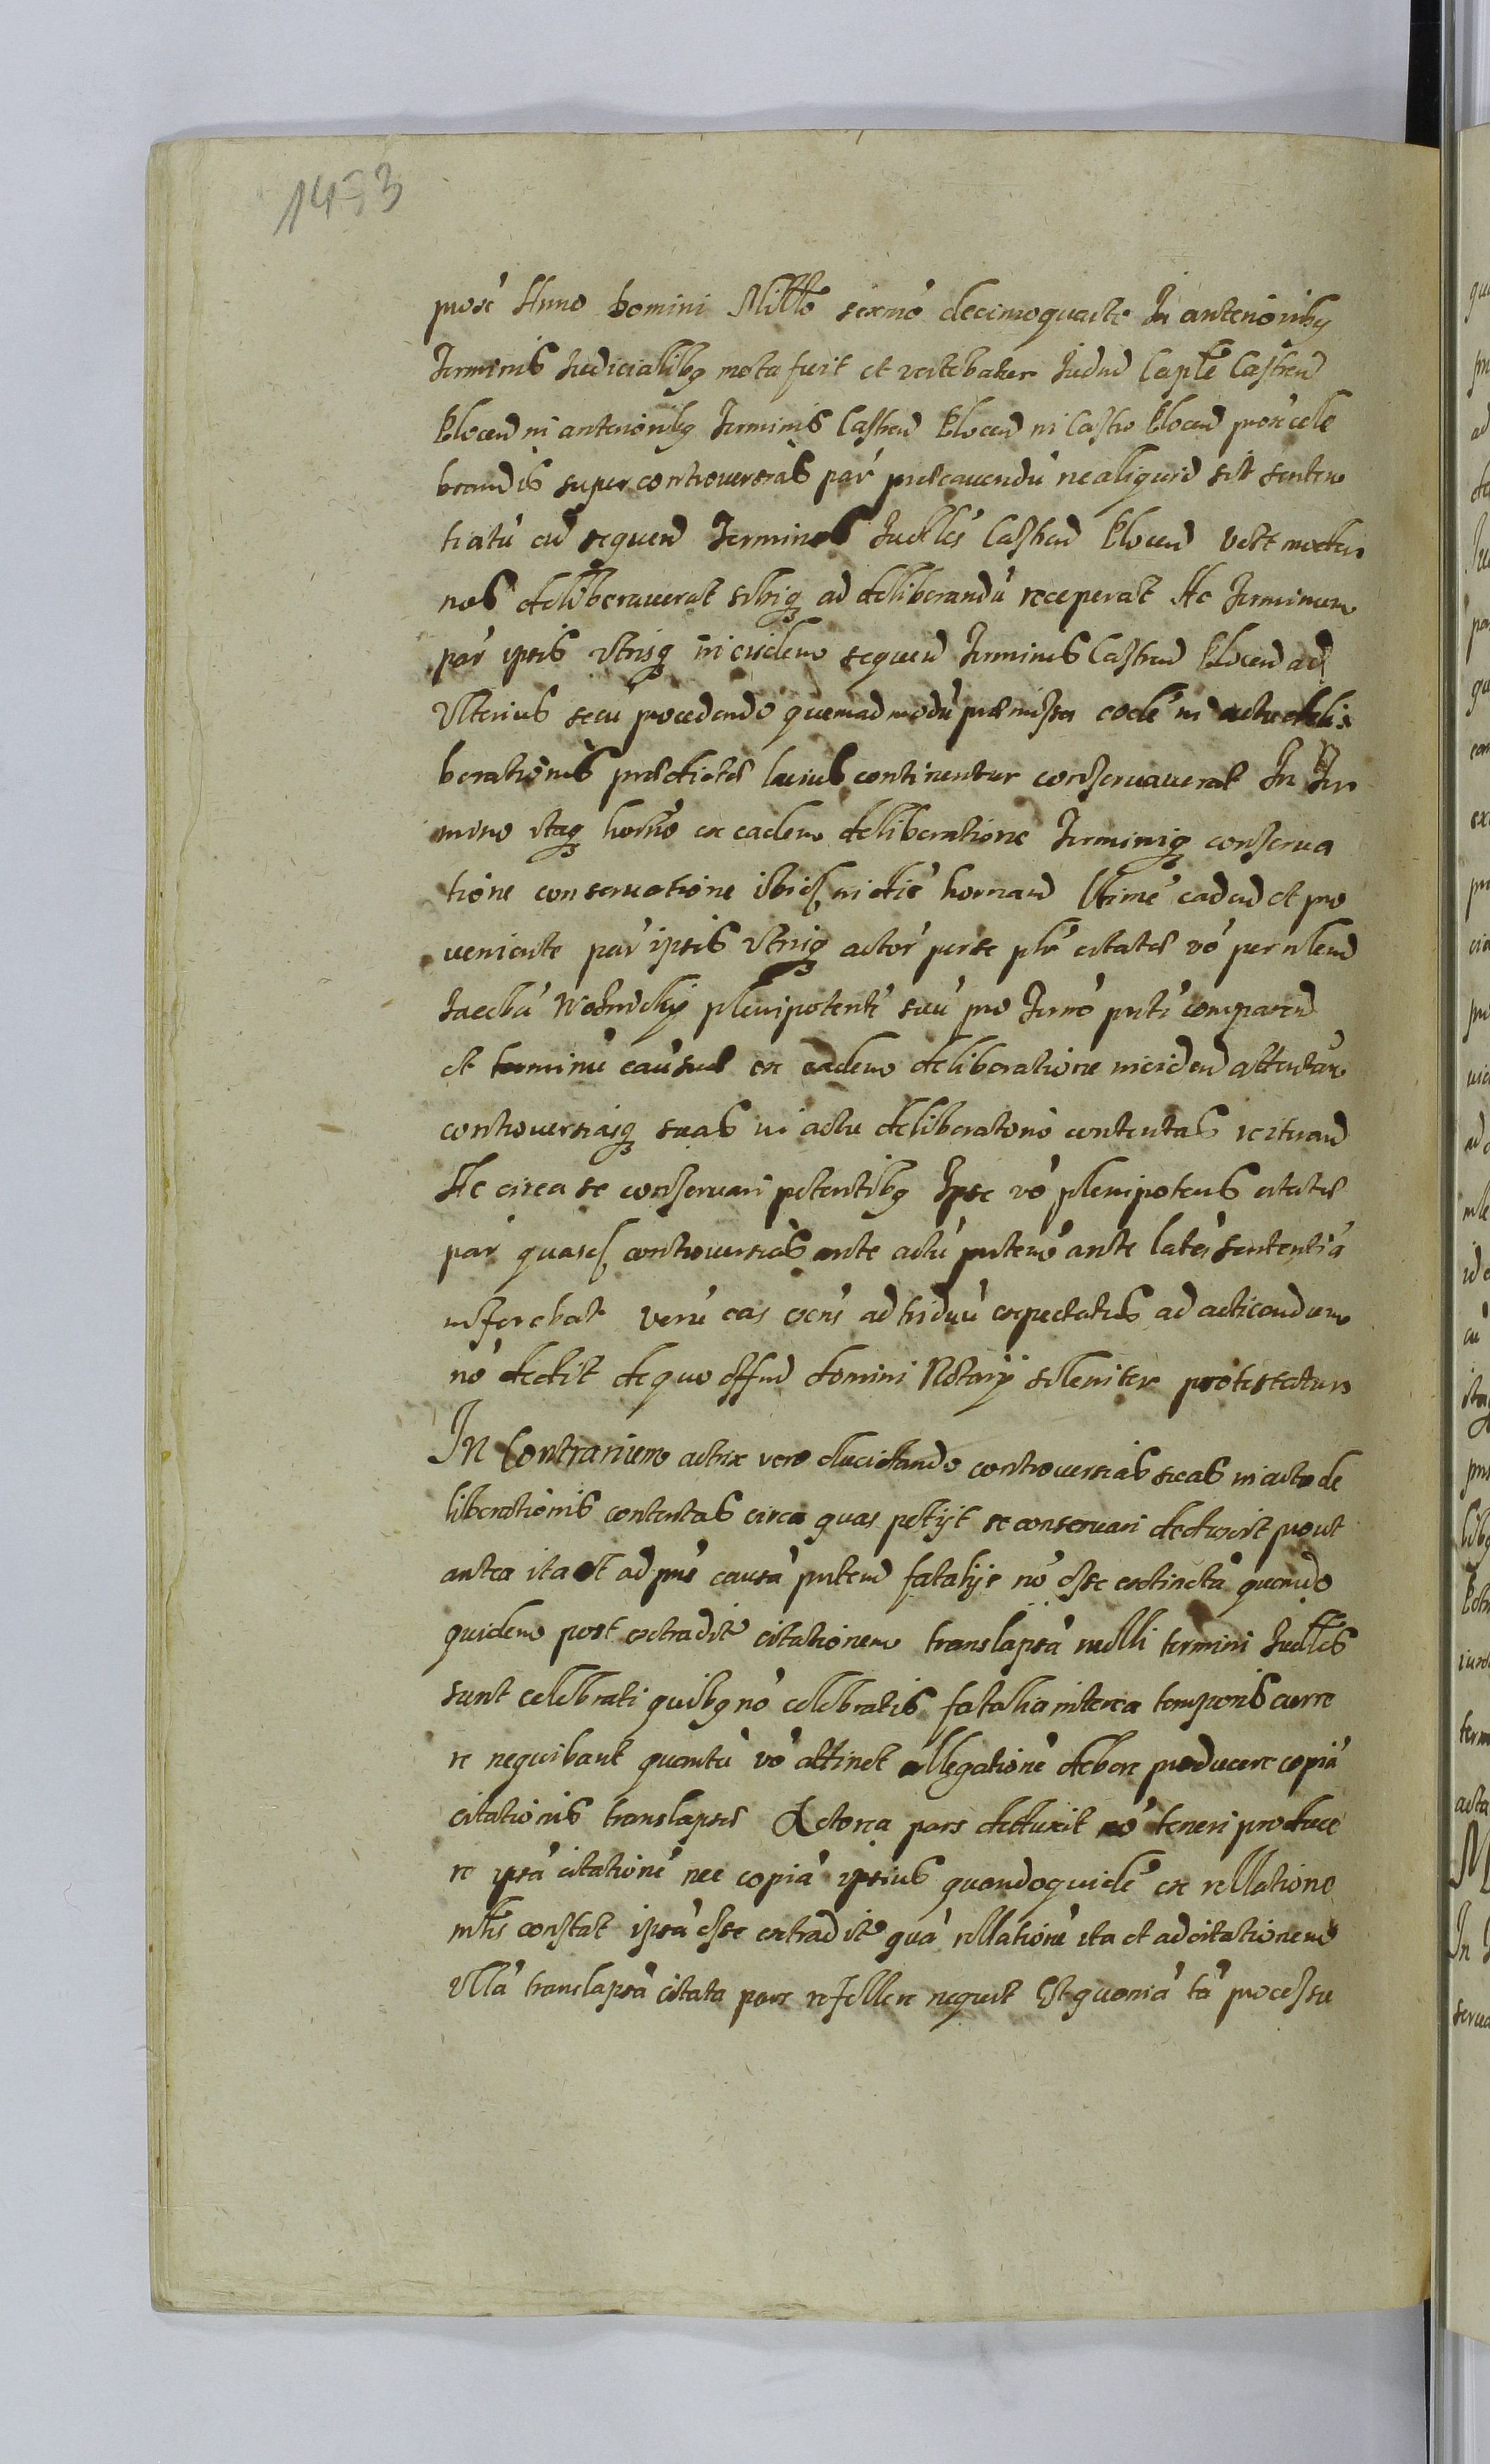 1433
prox̃ Anno Domini Millo sexmo decimoquarto In anterioribq
Terminis Judicialibq mota fuit et vertebatur Judm Caple Castren
Plocen in anteriorbq Terminis Castren Plocen in Castro Plocen prox cele
brandis super controversias par præcavendu ne aliquid sit senten
tiatu ad sequen Terminos Judles Castren Plocen
nos deliberaverat sibiq ad deliberandu receperat Ac Terminum
par ipsis utrisq in eisdem sequen Terminis Castren Plocen ad
Ulterius secu procedendo quemadmodu præmissa eode in actu deli
berationis prædictæ lacius continentur conservaverat In Ter
mino itaq horno ex eadem deliberatione Terminiq conserva
tione conservatione ibid in die hornand caden et pro
veniente par ipsis utrisq actor per se plr citatæ vo per nlem
Jacobu plenipotente suu pro Termo pnti comparen
et terminu causæ ex eadem deliberatione inciden attentan
controversiasq suas in actu deliberatorio contentas
Ac circa se conservari petentibq Ipse vo plenipotens citatæ
par quasd controversias ante actu pntem ante lata sententia
inferebat veru eas ad triduu expectatus ad acticandum
no dedit de quo offm domini Notarij soleniter protestatur
In Contrarium actrix vero elucidando controversias suas in actu de
liberationis contentas circa quas petijt se conservari deduxit prout
antea ita et ad pns causa pntem fatalijs no esse extincta quando
quidem post extradit citationem translapsa nulli termini Judles
sunt celebrati quibq no celebratis fatalia interea temporis curre
re nequibant quantu vo attinet allegatione debere producere copia
citationis translapsæ Actorea pars deduxit no teneri produce
re ipsa citatione nec copia ipsius quandoquide ex rellatione
mlis constat ipsa esse extradit qua rellatione ita et ad citationem
ulla translapsa citata pars refellere nequit Et quonia ta processu